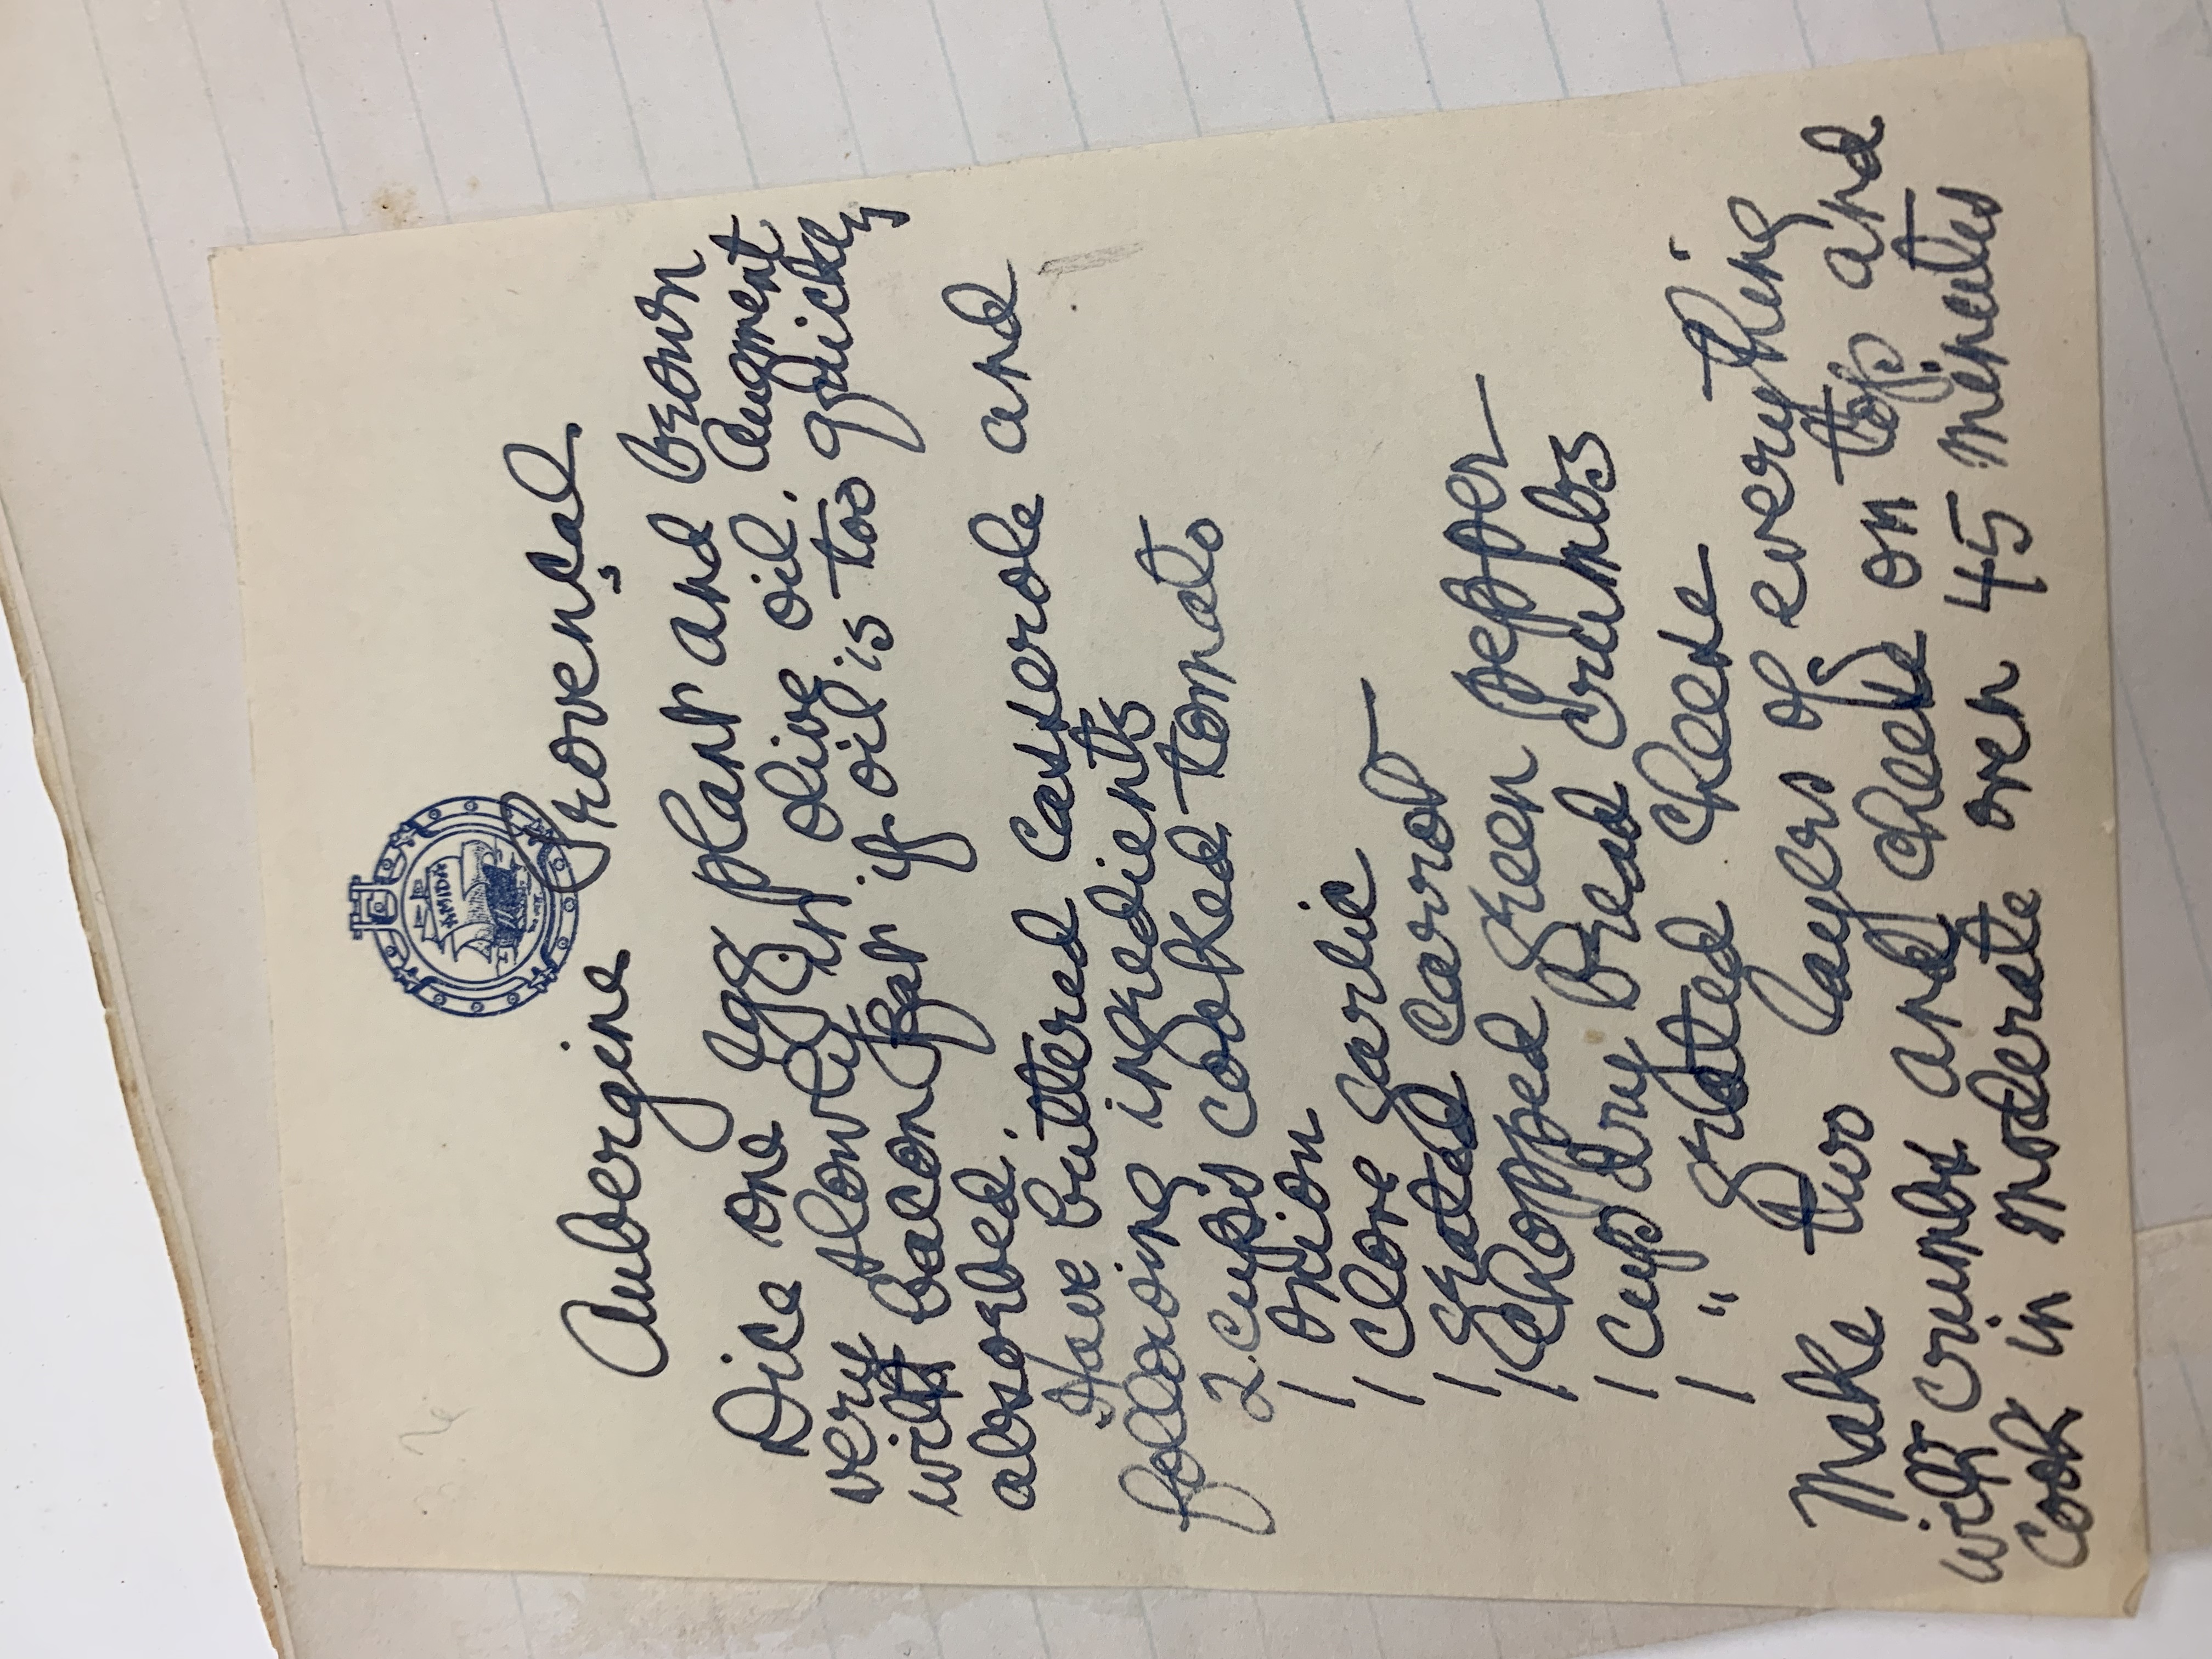 AMIDA
Aubergine Provençal
Dice one egg plant and brown
very slowly in olive oil. Augment
with bacon fat if oil is too quickly
absorbed.
Have buttered casserole and
following ingredients
2 cups cooked tomato
1 onion
1 clove garlic
1 grated carrot
1 chopped green pepper
1 cup dry bread crumbs
1 " grated cheese
Make two layers of everything
with crumbs and cheese on top and
cook in moderate oven 45 minutes